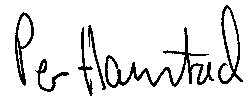 Per Hamstad